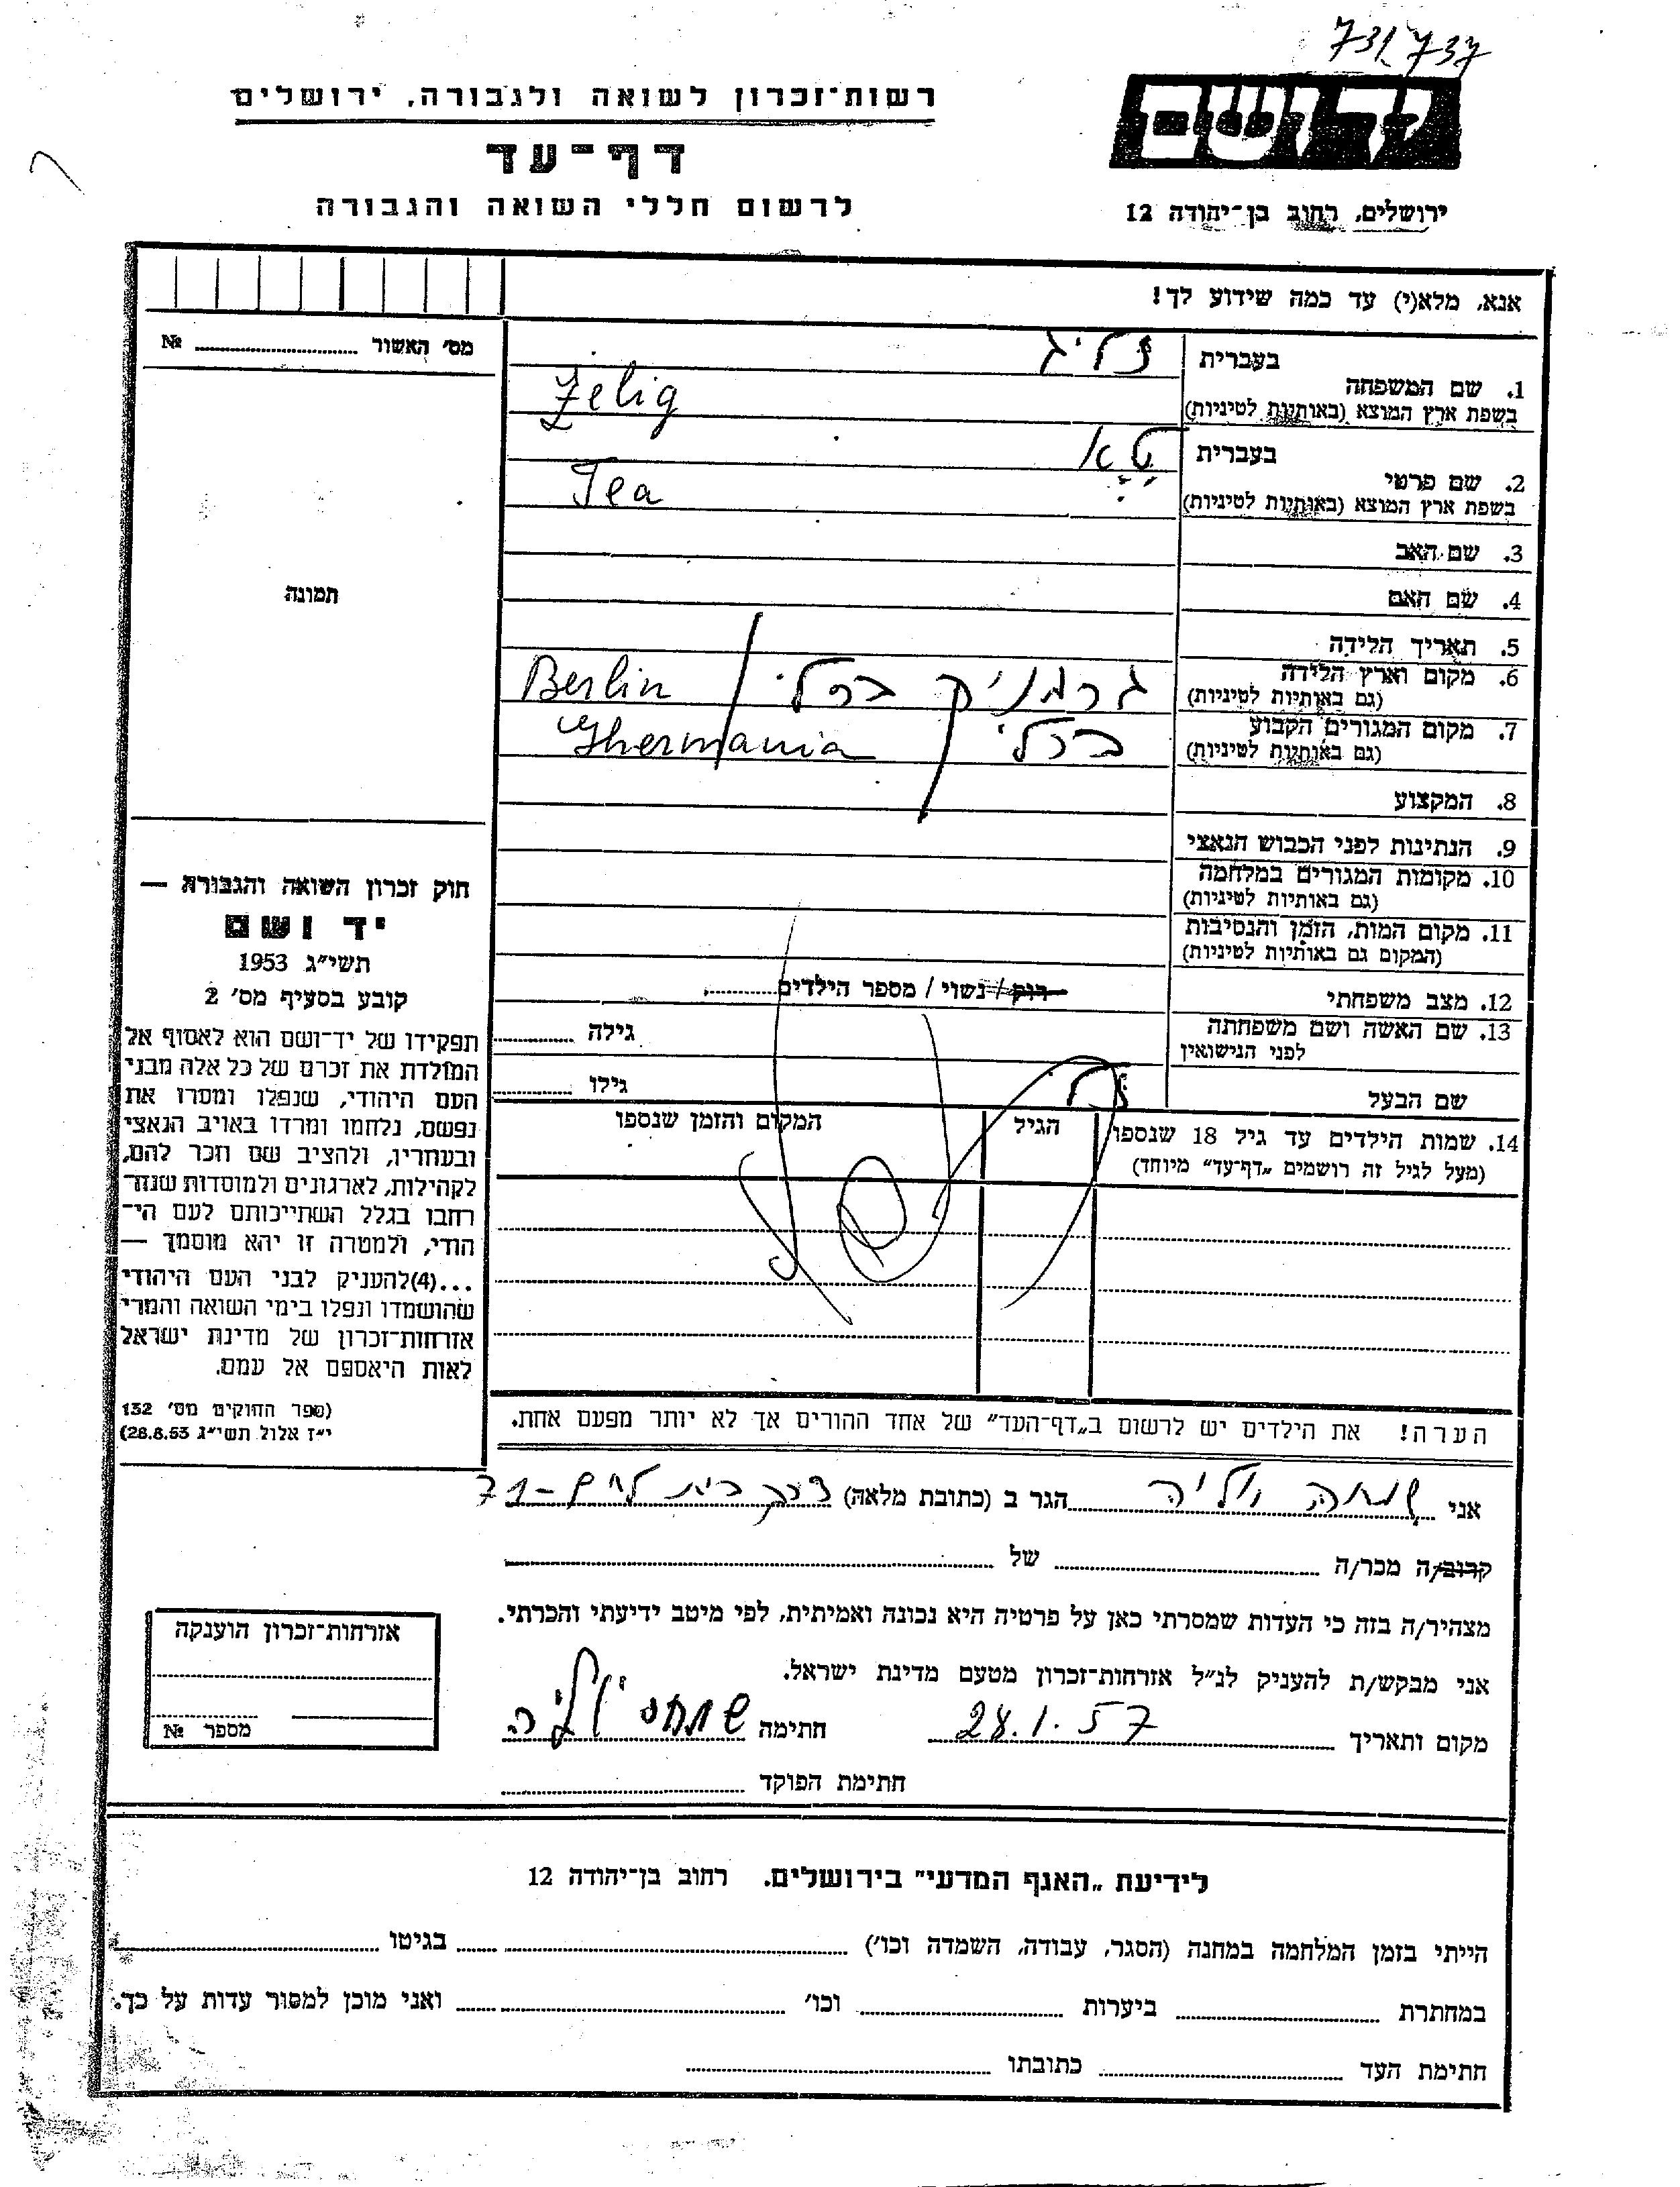 731,737
יד ושם
רשות־זכרון לשואה ולגבורה, ירושלים
דף־עד
לרשום חללי השואה והגבורה
ירושלים, רחוב בן־יהודה 12
אנא, מלא(י) עד כמה שידוע לך!
מס׳ האשור №
תמונה
בעברית זליג
1. שם המשפחה
בשפת ארץ המוצא (באותיות לטיניות) Zelig
בעברית טאא
2. שם פרטי
בשפת ארץ המוצא (באותיות לטיניות) Tea
3. שם האב
4. שם האם
5. תאריך הלידה
6. מקום וארץ הלידה
(גם באותיות לטיניות) Berlin
7. מקום המגורים הקבוע
(גם באותיות לטיניות) Ghermania
8. המקצוע
9. הנתינות לפני הכבוש הנאצי
10. מקומות המגורים במלחמה
(גם באותיות לטיניות)
11. מקום המות, הזמן והנסיבות
(המקום גם באותיות לטיניות)
12. מצב משפחתי רוק / נשוי / מספר הילדים
13. שם האשה ושם משפחתה גילה
לפני הנישואין
שם הבעל גילו
14. שמות הילדים עד גיל 18 שנספו הגיל המקום והזמן שנספו
(מעל לגיל זה רושמים „דף־עד” מיוחד)
הערה! את הילדים יש לרשום ב„דף־העד” של אחד ההורים אך לא יותר מפעם אחת.
חוק זכרון השואה והגבורה —
יד ושם
תשי״ג 1953
קובע בסעיף מס׳ 2
תפקידו של יד־ושם הוא לאסוף אל
המולדת את זכרם של כל אלה מבני
העם היהודי, שנפלו ומסרו את
נפשם, נלחמו ומרדו באויב הנאצי
ובעוזריו, ולהציב שם וזכר להם,
לקהילות, לארגונים ולמוסדות שנח־
רבו בגלל השתייכותם לעם הי־
הודי, ולמטרה זו יהא מוסמך —
...(4)להעניק לבני העם היהודי
שהושמדו ונפלו בימי השואה והמרי
אזרחות־זכרון של מדינת ישראל
לאות היאספם אל עמם.
(ספר החוקים מס׳ 132
י״ז אלול תשי״ג 28.8.53)
אני הגר ב (כתובת מלאה) דרך בית לחם - 71
קרוב/ה מכר/ה של
מצהיר/ה בזה כי העדות שמסרתי כאן על פרטיה היא נכונה ואמיתית, לפי מיטב ידיעתי והכרתי.
אני מבקש/ת להעניק לנ״ל אזרחות־זכרון מטעם מדינת ישראל.
מקום ותאריך 28.1.57 חתימה
חתימת הפוקד
אזרחות־זכרון הוענקה
מספר №
לידיעת „האגף המדעי” בירושלים. רחוב בן־יהודה 12
הייתי בזמן המלחמה במחנה (הסגר, עבודה, השמדה וכו׳) בגיטו
במחתרת ביערות וכו׳ ואני מוכן למסור עדות על כך.
חתימת העד כתובתו